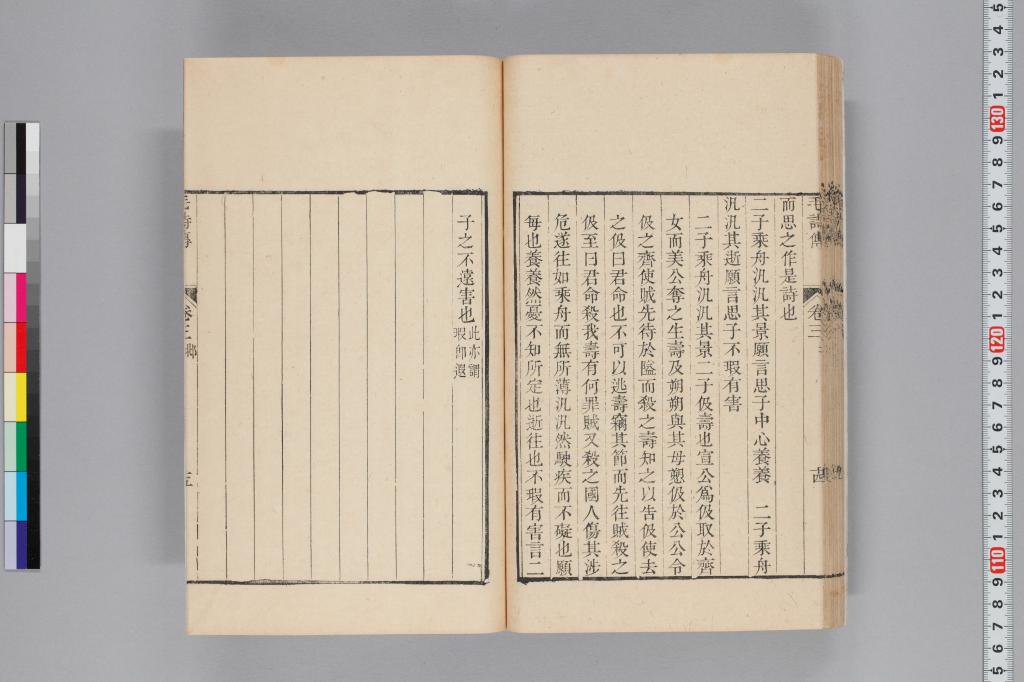 而思之作是詩也
二子乘舟汎汎其景願言思子中心養養　二子乘舟
汎汎其逝願言思子不瑕有害
二子乘舟汎汎其景二子伋壽也宣公爲伋取於齊
女而美公奪之生壽及朔朔與其母愬伋於公公令
伋之齊使賊先待於隘而殺之壽知之以告伋使去
之伋曰君命也不可以逃壽竊其節而先往賊殺之
伋至曰君命殺我壽有何罪賊又殺之國人傷其涉
危遂往如乘舟而無所薄汎汎然駛疾而不礙也願
每也養養然憂不知所定也逝往也不瑕有害言二
子之不遠害也此亦謂
瑕卽遐
毛詩傳
卷三